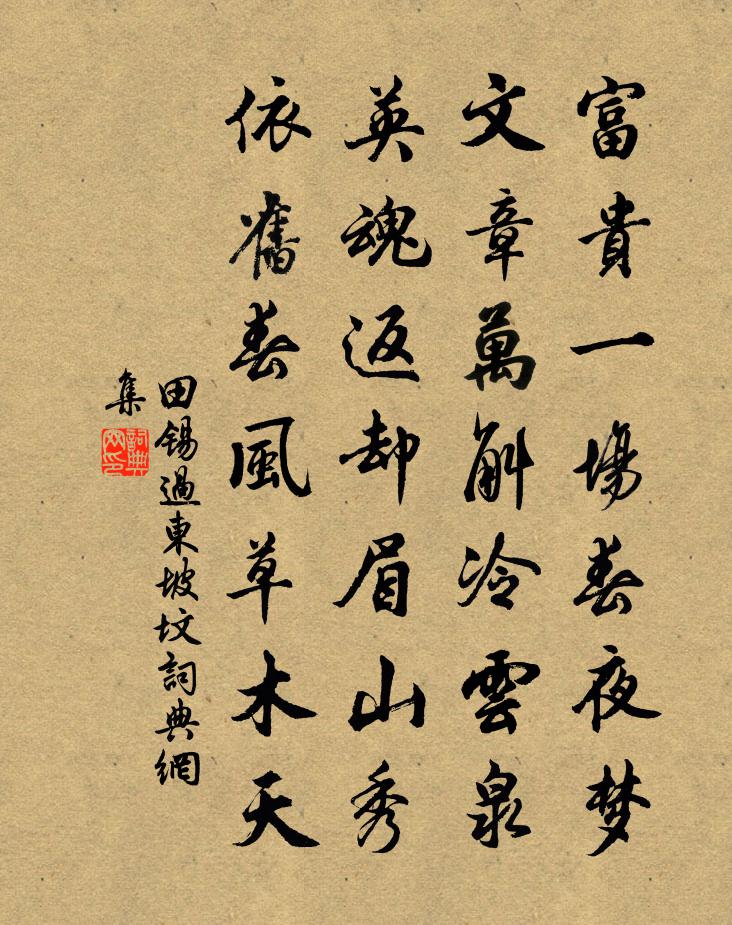 富貴一場春夜梦
文章萬斛冷雲泉
英魂返却眉山秀
依舊春風草木天
田锡過東坡坟詞典網
集
詞典
网印